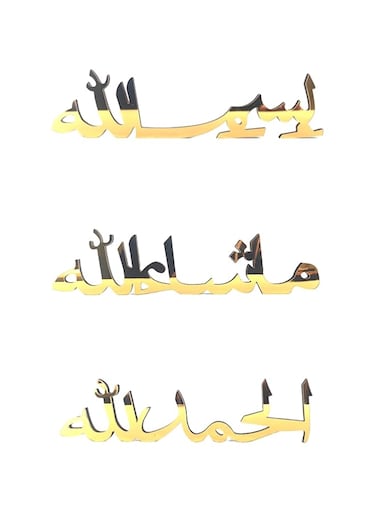 بسم الله
ماشاءالله
الحمدلله